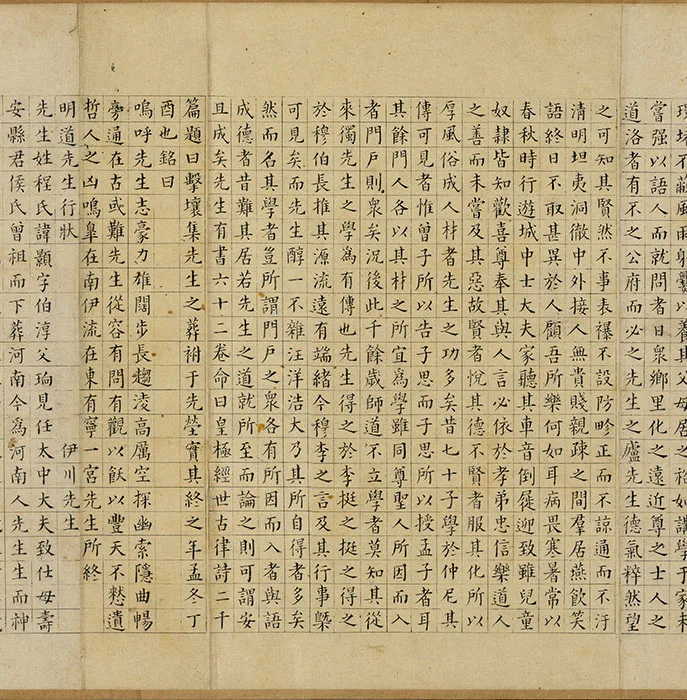 環堵不蔽風雨躬爨以養其父母居之裕如講學于家未
嘗强以語人而就問者日衆鄉里化之遠近尊之士人之
道洛者有不之公府而必之先生之廬先生德氣粹然望
之可知其賢然不事表襮不設防畛正而不諒通而不汙
清明坦夷洞徹中外接人無貴賤親疎之間羣居燕飲笑
語終日不取甚異於人顧吾所樂何如耳病畏寒暑常以
春秋時行遊城中士大夫家聽其車音倒屣迎致雖兒童
奴隸皆知歡喜尊奉其與人言必依於孝弟忠信樂道人
之善而未嘗及其惡故賢者悅其德不賢者服其化所以
厚風俗成人材者先生之功多矣昔七十子學於仲尼其
傳可見者惟曾子所以告子思而子思所以授孟子者耳
其餘門人各以其材之所宜爲學雖同尊聖人所因而入
者門戶則衆矣況後此千餘歲師道不立學者莫知其從
來獨先生之學爲有傳也先生得之於李挺之挺之得之
於穆伯長推其源流遠有端緒今穆李之言及其行事槩
可見矣而先生醇一不雜汪洋浩大乃其所自得者多矣
然而名其學者豈所謂門戶之衆各有所因而入者與語
成德者昔難其居若先生之道就所至而論之則可謂安
且成矣先生有書六十二卷命曰皇極經世古律詩二千
篇題曰擊壤集先生之葬祔于先塋實其終之年孟冬丁
酉也銘曰
嗚呼先生志豪力雄闊步長趨淩高厲空探幽索隱曲暢
旁通在古或難先生從容有問有觀以飫以豐天不憖遺
哲人之凶鳴臯在南伊流在東有寧一宮先生所終
明道先生行狀 伊川先生
先生姓程氏諱顥字伯淳父珦見任太中大夫致仕母壽
安縣君侯氏曾祖而下葬河南今爲河南人先生生而神